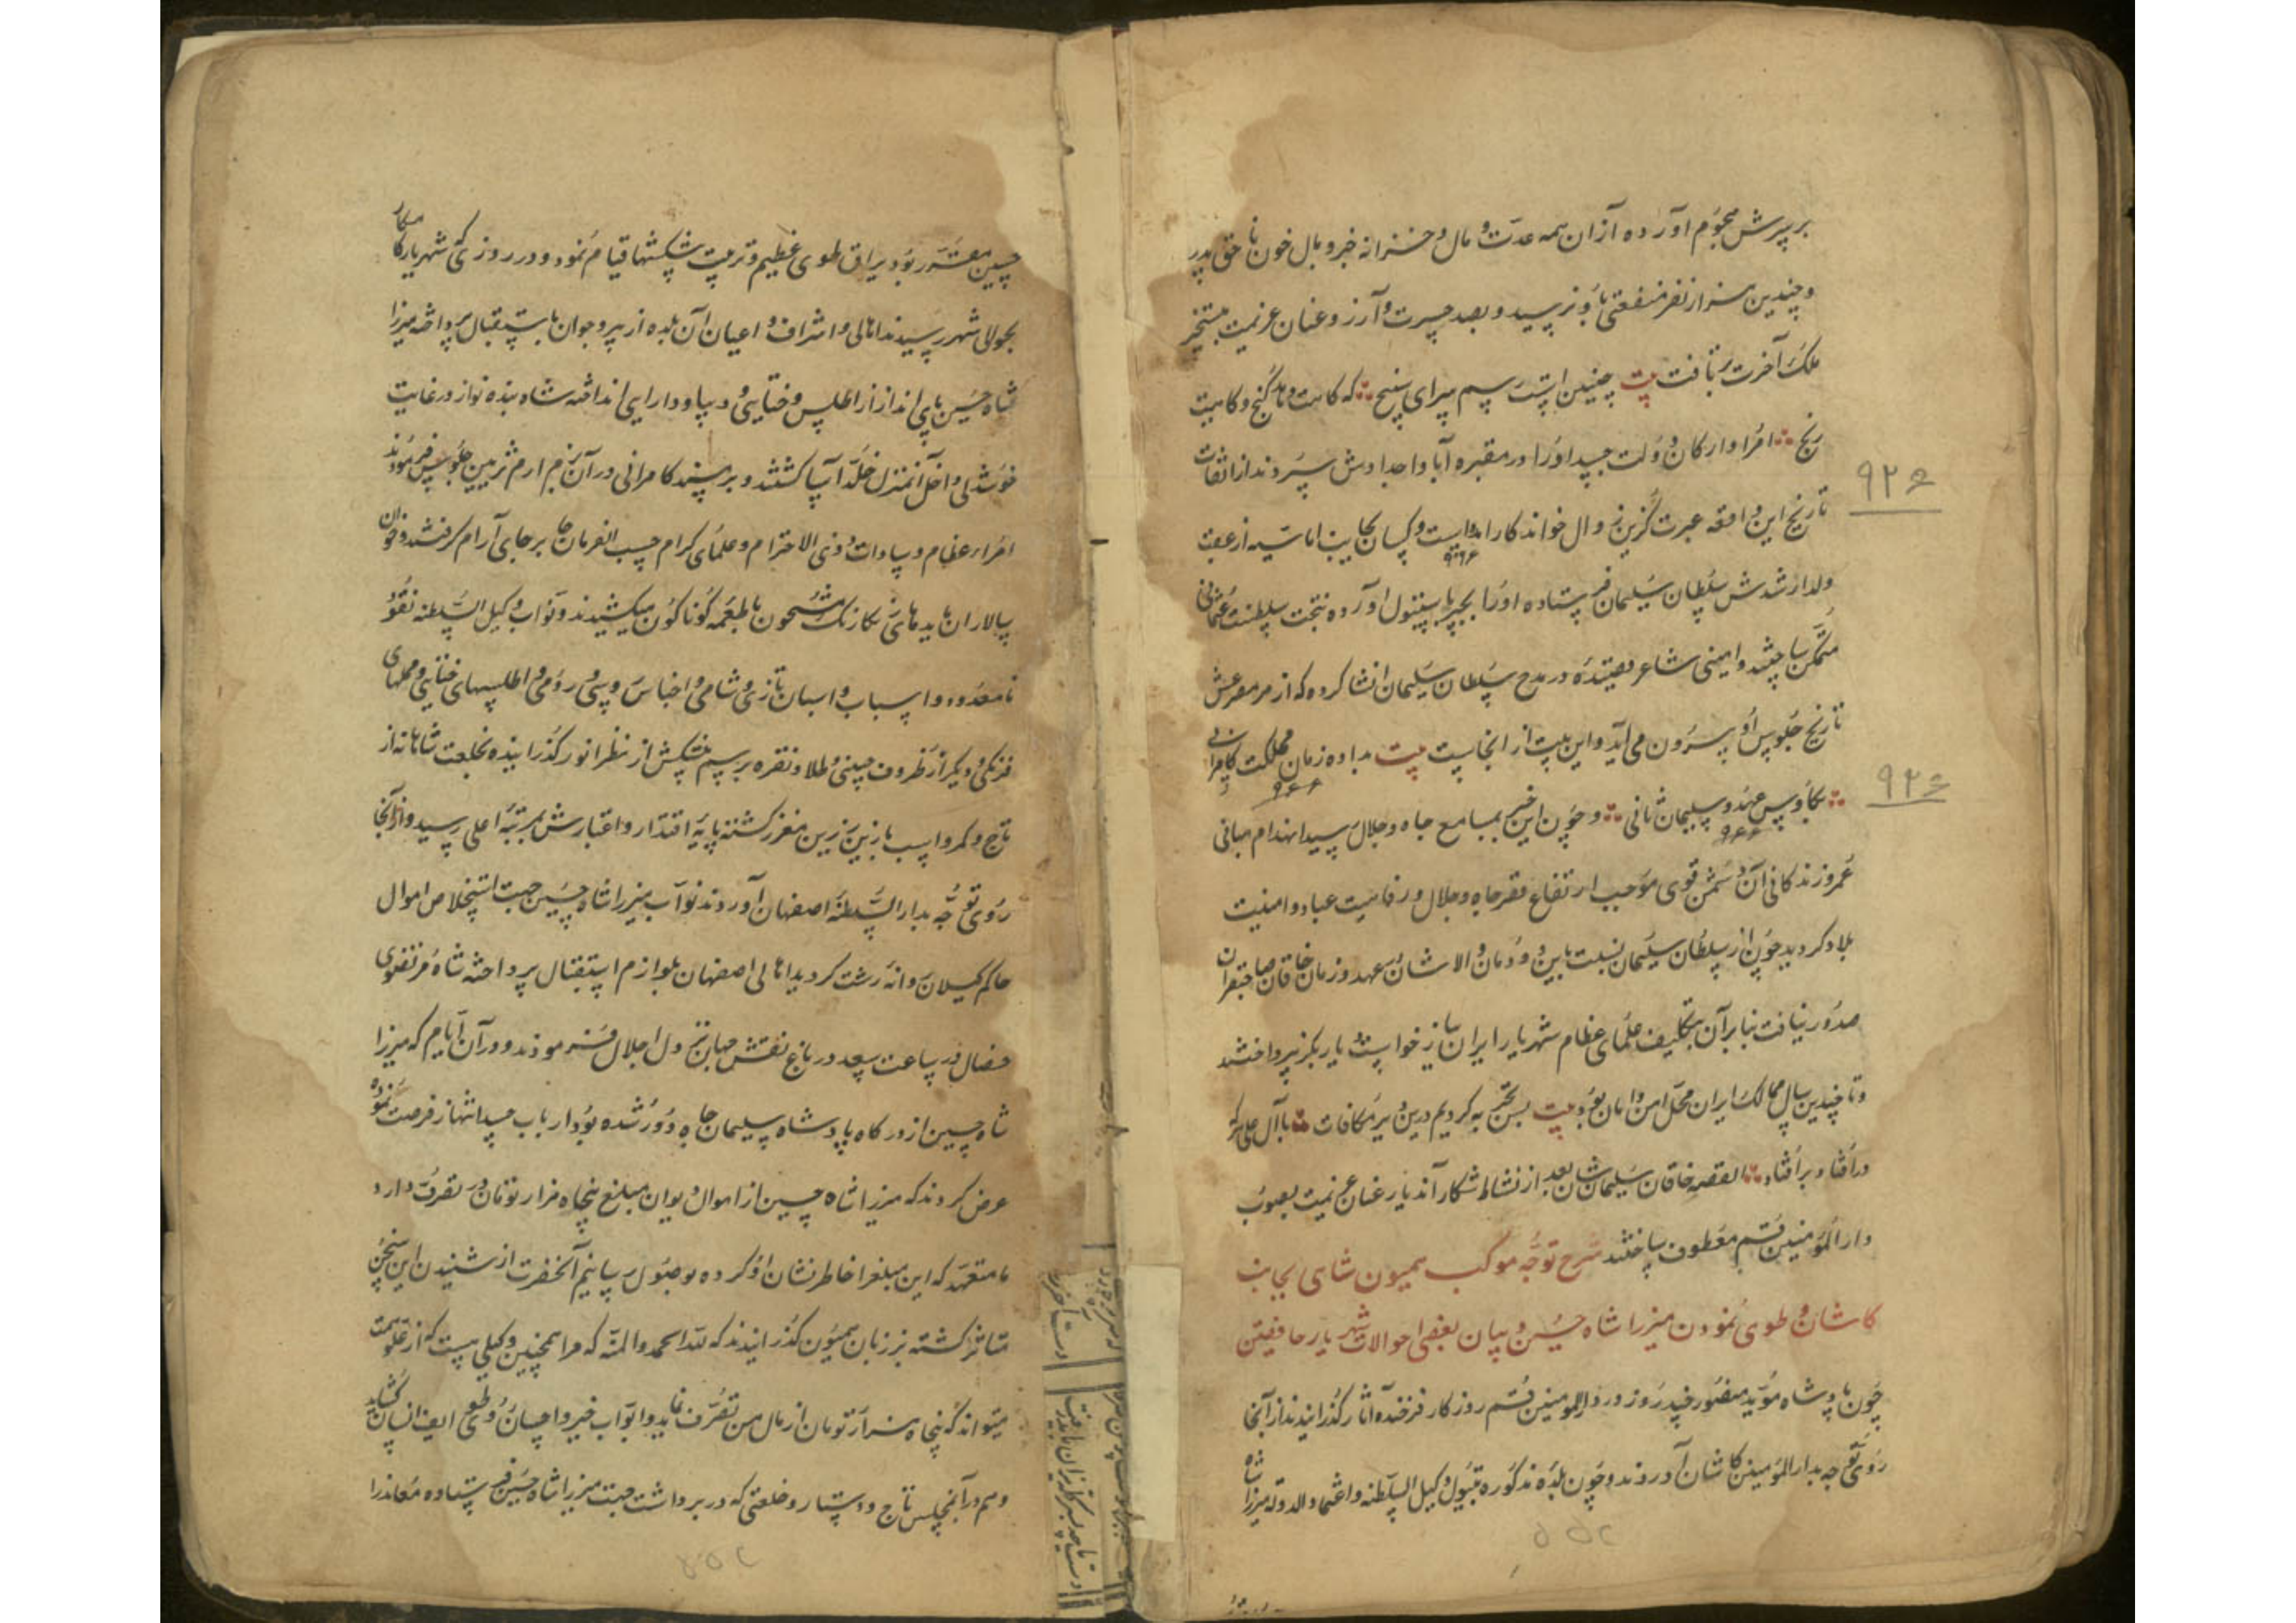 بر سرش هجوم آورده از آن همه عدت و مال و خزانه خبر وبال خون ناحق پدر
و چندین هزار نفر منفعتی باو نرسید و بصد حسرت و آرزو عنان عزیمت
ملک آخرت بر تافت بیت چنین است رسم سرای سپنج که گاهیت و نا گنج و گاهیت
رنج امرا و ارکان دولت جسد او را در مقبره آبا و اجدادش سپردند از اتفاقات
تاریخ این واقعه عبرت گزین زوال خواندکار
۹۲۶
۹۲۶
ولد ارشدش سلطان سلیمان فرستاده او را باستنبول آورده بتخت سلطنت عثمانی
متمکن ساختند و امینی شاعر قصیده در مدح سلطان سلیمان انشا کرده که از هر مصرعش
تاریخ جلوس او بیرون می آید و این بیت از انجاست بیت بداده زمان مملکت کامرانی
۹۲۶
۹۲۶
بکاوس عهد و سلیمان ثانی و چون این خبر بمسامع جاه و جلال رسید انهدام مبانی
۹۲۶
عمر و زندگانی آن دشمن قوی موجب ارتفاع قصر جاه و جلال و رفاهیت عباد و امنیت
بلاد گردید چون از سلطان سلیمان نسبت باین دودمان والاشان عهد و زمان خاقان صاحبقران
صدور نیافت بنابر آن بتکلیف علمای عظام شهریار ایران نیز بازخواست یکدیگر نپرداختند
و تا چندین سال ممالک ایران محل امن و امان بود بیت بس تجربه کردیم درین دیر مکافات با آل علی هر که
در افتاد بر افتاد القصه خاقان سلیمان شان بعد از نشاط شکار آن دیار عنان عزیمت بصوب
دار المؤمنین قم معطوف ساختند شرح توجه موکب همیون شاهی بجانب
کاشان و طوی نمودن میرزا شاه حسین و بیان بعضی احوالات شهریار
چون پادشاه مؤید منصور چند روز در دار المومنین قم روزگار فرخنده آثار گذرانیدند از آنجا
روی توجه بدار المؤمنین کاشان آوردند و چون بلده مذکوره بتیول وکیل السلطنه و اعتماد الدوله میرزا شاه
حسین مقرر بود بیراق طوی عظیم و ترتیب پیشکشها قیام نمود و در روزی که شهریار کامکار
بحوالی شهر رسیدند اهالی و اشراف و اعیان آن بلده از پیر و جوان باستقبال پرداخته میرزا
شاه حسین پای انداز از اطلس و ختایی و دیبا و دارایی انداخته شاه بنده نواز در غایت
خوشدلی داخل آن منزل خلد آسا گشتند و بر مسند کامرانی در آن بزم ارم تزیین جلوس فرمودند
امراء عظام و سادات ذوی الاحترام و علمای کرام حسب الفرمان بر جای آرام گرفتند و خوان
سالاران مشحون باطعمه گوناگون میکشیدند و نواب وکیل السلطنه نقود
نامعدود و اسباب و اسبان تازی و شامی و اجناس روسی و رومی و اطلسهای ختایی و مخملهای
فرنگی و دیگر از ظروف چینی و طلا و نقره برسم پیشکش از نظر انور گذرانیده بخلعت شاهانه از
تاج و کمر و اسب بازین زرین معزز گشته پایه اقتدار و اعتبارش بمرتبه اعلی رسید و از آنجا
روی توجه بدار السلطنه اصفهان آوردند نواب میرزا شاه حسین جهت استخلاص اموال
حاکم گیلان روانه رشت گردید اهالی اصفهان بلوازم استقبال پرداخته شاه مرتضوی
خصال در ساعت سعد در باغ نقش جهان نزول اجلال فرمودند و در آن ایام که میرزا
شاه حسین از درگاه پادشاه سلیمان جاه دور شده بود ارباب حسد انتهاز فرصت نموده
عرض کردند که میرزا شاه حسین از اموال دیوان مبلغ پنجاه هزار تومان در تصرف دارد
ما متعهد که این مبلغرا خاطر نشان او کرده بوصول رسانیم آنحضرت از شنیدن این سخن
متاثر گشته بر زبان همیون گذرانیدند که لله الحمد والمنه که مرا همچنین وکیلی هست که از علو همت
میتواند که پنجاه هزار تومان از مال من تصرف نماید و ابواب خیر و احسان بر روی
و هم در آن مجلس تاج و دستار و خلعتی که در بر داشت جهت میرزا شاه حسین فرستاده معاندرا